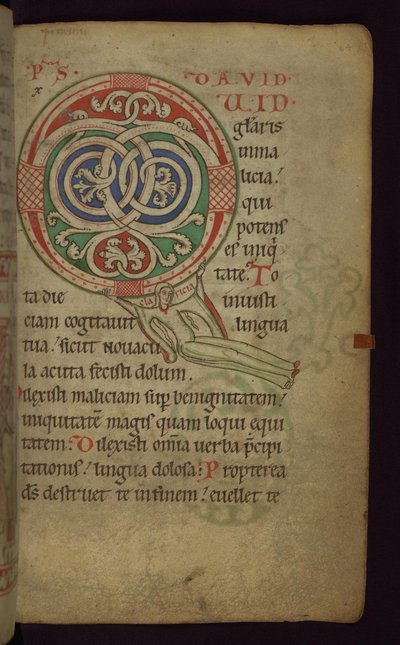 PS DAVID
X UID
głaris
in ma
licia?
qui
potens
es iniq̇
tate. To
ta die iniusti
ciam cogitauit lingua
tua? sicut nouacu
la acuta fecisti dolum.
Dilexisti maliciam sup benignitatem?
iniquitatem magis quam loqui equi
tatem: Dilexisti om̄ia uerba p̄cipi
tationis? lingua dolosa: Propterea
d̄s destruet te infinem? euellet te
CLARICIA